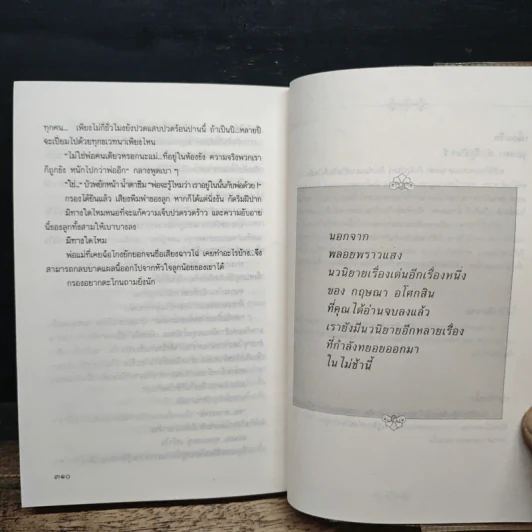 ทุกคน... เพียงไม่กี่ชั่วโมงยังปวดแสบปวดร้อนปานนี้ ถ้าเป็นปี...หลายปี
จะเปี่ยมไปด้วยทุกขเวทนาเพียงไหน
"ไม่ใช่พ่อคนเดียวหรอกนะแม่...ที่อยู่ในห้องขัง ความจริงพวกเรา
ก็ถูกขัง หนักไปกว่าพ่ออีก" กลางพูดเบา ๆ
"ใช่..." บัวพยักหน้า น้ำตาซึม "พ่อจะรู้ไหมว่า เราอยู่ในนั้นกับพ่อด้วย!"
กรองได้ยินแล้ว เสียงพึมพำของลูก หากก็ได้แต่นิ่งงัน กัดริมฝีปาก
มีทางใดไหมหนอที่จะแก้ความเจ็บปวดรวดร้าว และความอับอาย
นี้ของลูกทั้งสามให้เบาบางลง
มีทางใดไหม
พ่อแม่ที่เคยฉ้อโกงยักยอกจนชื่อเสียงฉาวโฉ่ เคยทำอะไรบ้าง...จึง
สามารถกลบบาดแผลนี้ออกไปจากหัวใจลูกน้อยของเขาได้
กรองอยากตะโกนถามยิ่งนัก
๓๑๐
นอกจาก
พลอยพราวแสง
นวนิยายเรื่องเด่นอีกเรื่องหนึ่ง
ของ กฤษณา อโศกสิน
ที่คุณได้อ่านจบลงแล้ว
เรายังมีนวนิยายอีกหลายเรื่อง
ที่กำลังทยอยออกมา
ในไม่ช้านี้